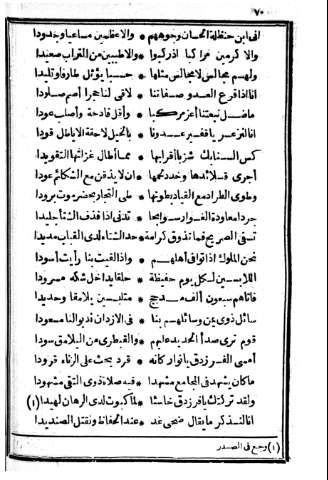 ٧٠
لبنى ابن حنظلة الحسان وجوههم * والاعظمين مساعيا وجدودا
والاكرمين مراكبا اذ ركبوا * والاطيبين من التراب صعيدا
ولهم مجالس لا مجالس مثلها * حسبا يؤثل طارفا وتليدا
انا اذا قرع العدو صفاتنا * لاقى لنا حجرا أصم صلودا
ما ضل نبعتنا أعز مركبا * وأقل قادحة وأصلب عودا
انا لنذعر يا قفير عدونا * بالخيل لاحقة الاياطل قودا
كس السنابك شزبا أقرابها * مما أطال غزاتها التقويدا
أجرى قلائدها وخدد لحمها * ان لا يذقن مع الشكائم عودا
وطوى الطراد مع القياد بطونها * طى التجار بحضرموت برودا
جردا معاودة الغوار سوابحا * تدنى اذا قذف الشتاء جليدا
تسقى الصريح فما تذوق كرامة * حد الشتاء لدى القباب مديدا
نحن الملوك اذا توا فى أهلهم * واذا لقيت بنا رأيت أسودا
اللابسين لكل يوم حفيظة * حلقا يداخل شكه مسرودا
فأتاهم سبعون ألف مدجج * متلبسين يلامقا وحديدا
سائل ذوى يمن وسائلهم بنا * فى الازد اذ ندبوا لنا مسعودا
قوم ترى صدأ الحديد عليهم * والقبطرى من اليلامق سودا
أمسى الفرزدق يا نوار كأنه * قرد يحث على الزناء قرودا
ما كان يشهد فى المجامع مشهدا * فيه صلاة ذوى التقى مشهودا
ولقد تركتك يا فرزدق خاسئا * لما كبوت لدى الرهان لهيدا (١)
انا لنذكر ما يقال ضحى غد * عند الحفاظ ونقتل الصنديدا
(١) وجع فى الصدر